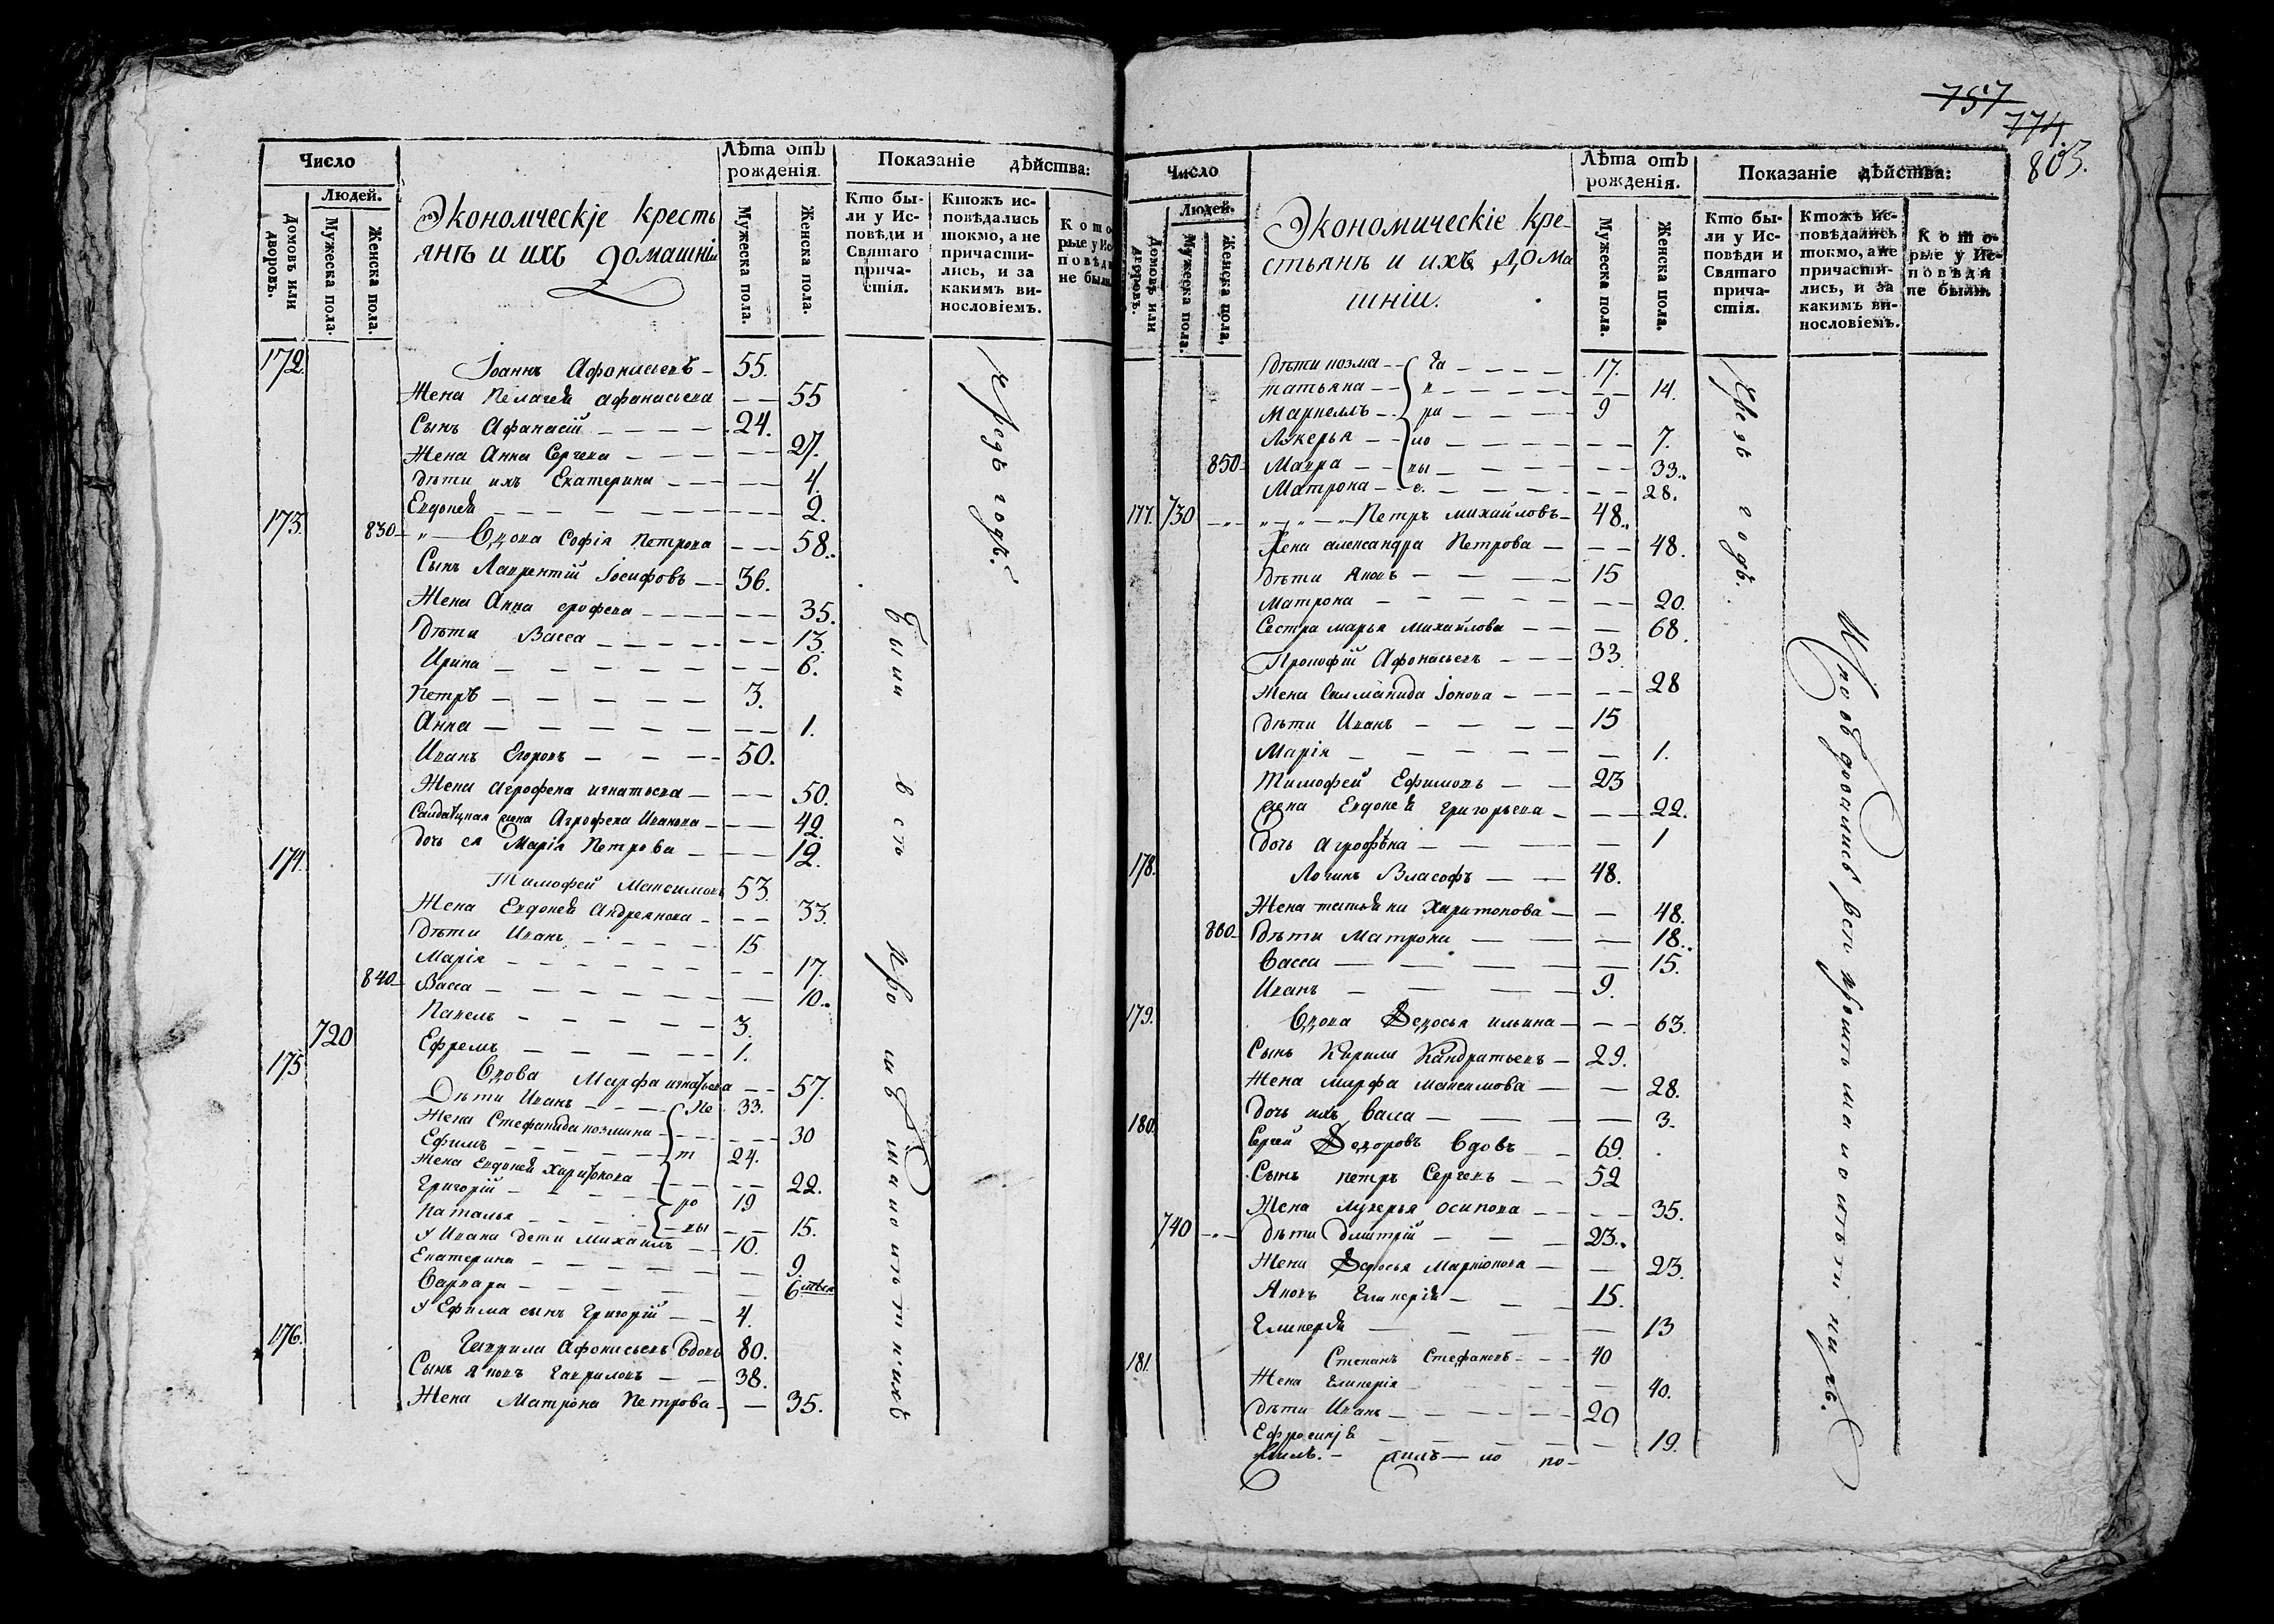 Число
Людей.
Домовъ или дворовъ.
Мужеска пола.
Женска пола.
Экономическіе кресть
янъ и ихъ домашніи
Лѣта отъ рожденія.
Мужеска пола.
Женска пола.
Показаніе дѣйства:
Кто бы-
ли у Ис-
повѣди и
Святаго
прича-
стія.
Ктожъ ис-
повѣдались
токмо, а не
причасти-
лись, и за
какимъ ви-
нословіемъ.
Кото
рые у Ис
повѣди
не были
172. Іоаннъ Афонасьевъ – 55.
Жена Пелагея афанасьева – – 55
Сынъ Афанасій – – – – 24.
Жена Анна Сергева – – – 27.
дѣти ихъ Екатерина – – – 4.
Евдокея – – – – – 2.
173. 830 – Вдова Софія Петрова – – 58.
Сынъ Лаврентій Іосифовъ – – 36.
Жена Анна ерофева – – – 35.
Дѣти Васса – – – – 13.
Ирина – – – – – 6.
Петръ – – – – – 3.
Анна – – – – – 1.
Иванъ Егоровъ – – – 50.
Жена агрофена игнатьева – – 50.
Салдатцкая жена Агрофена Иванова – – 42.
дочь ея Марія Петрова – – 12.
174. Тимофей Максимовъ 53.
Жена Евдокея Андреянова – – 33.
Дѣти Иванъ – – – – 15
Марія – – – – – 17.
840 – Васса – – – – – 10.
Павелъ – – – – – 3.
720 Ефремъ – – – – 1.
175. Вдова Марфа игнатьева – – 57.
Дѣти Иванъ – – – Пе 33.
Жена Стефанида козмина – – – 30
Ефимъ – – – – т 24.
Жена Евдокея Харитонова – – – 22.
Григорій – – – – ро 19
Наталья – – – – вы – – 15.
У Ивана дети михаилъ – – 10.
Екатерина – – – – – 9.
Варвара – – – – – 6
У Ефима сынъ Григорій – – 4.
176. Гаврила Афонасьевъ Вдовъ 80.
Сынъ яковъ Гавриловъ – – 38.
Жена Матрона Петрова – – 35.
Были
годѣ.
757
774.
803.
Число
Людей.
Домовъ или дворовъ.
Мужеска пола.
Женска пола,
Экономическіе кре-
стьянъ и ихъ дома
шніи.
Лѣта отъ рожденія.
Мужеска пола.
Женска пола.
Показаніе дѣйства:
Кто бы-
ли у Ис-
повѣди и
Святаго
прича-
стія.
Ктожъ ис-
повѣдались
токмо, а не
причасти-
лись, и за
какимъ ви-
нословіемъ.
Кото-
рые у Ис-
повѣди
не были.
дѣти козма – – Га – – – – 17.
татьяна – – в – – – – 14.
Маркеллъ – – ри – – – 9
Лукерья – – ло – – – – 7.
850 – Мавра – – вы – – – – 33.
Матрона – – – – – – 28.
177. 730 – Петръ михайловъ – 48.
Жена александра Петрова – – – 48.
дѣти яковъ – – – – 15
матрона – – – – – 20.
Сестра марья михайлова – – – 68.
Прокофій Афонасьевъ – – – 33.
Жена Саламанида Іонова – – – 28
дѣти Иванъ – – – – 15
Марія – – – – – 1.
Тимофей Ефимовъ – – 23
жена Евдокея григорьева – – – 22.
дочь агрофѣна – – – – 1
178. Логинъ Власофъ – – 48.
Жена татьяна Харитонова – – 48.
860 – дѣти Матрона – – – 18.
Васса – – – – 15.
Иванъ – – – – 9.
179. Вдова Ѳедосья ильина – – – 63.
Сынъ Кирила Кандратьевъ – 29.
Жена марфа максимова – – 28.
дочь ихъ Васса – – – 3.
180. Сергей Ѳедоровъ Вдовъ – – 69.
Сынъ петръ Сергевъ – – 52
Жена лукерья осипова – – – 35.
740 – дѣти дмитрій – – – 23.
Жена Ѳедосья Маркіонова – – 23.
Яковъ – – – 15.
Гликерѣя – – – – 13
181. Степанъ Стефановъ – – – 40
Жена Гликерія – – – 40.
дѣти Иванъ – – – – 20
Ефросинія – – – – – 19.
годѣ.